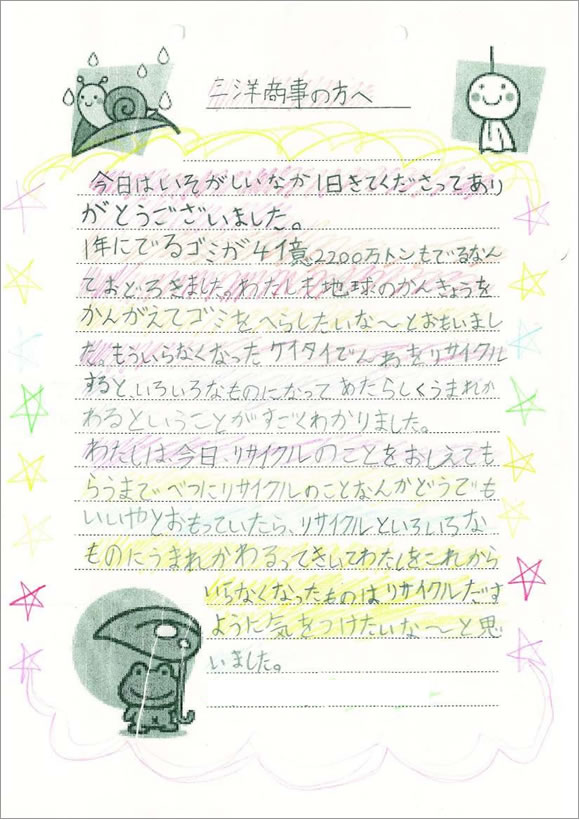 三洋商事の方へ
今日はいそがしいなか1日きてくださってあり
がとうございました。
1年にでるゴミが4億2200万トンもでるなん
ておどろきました。わたしも地球のかんきょうを
かんがえてゴミをへらしたいな〜とおもいまし
た。もういらなくなったケイタイでんわをリサイクル
すると、いろいろなものになってあたらしくうまれか
わるということがすごくわかりました。
わたしは今日、リサイクルのことをおしえても
らうまでべつにリサイクルのことなんかどうでも
いいやとおもっていたら、リサイクルといろいろな
ものにうまれかわるってきいてわたしもこれから
いらなくなったものはリサイクルだす
ように気をつけたいな〜と思
いました。